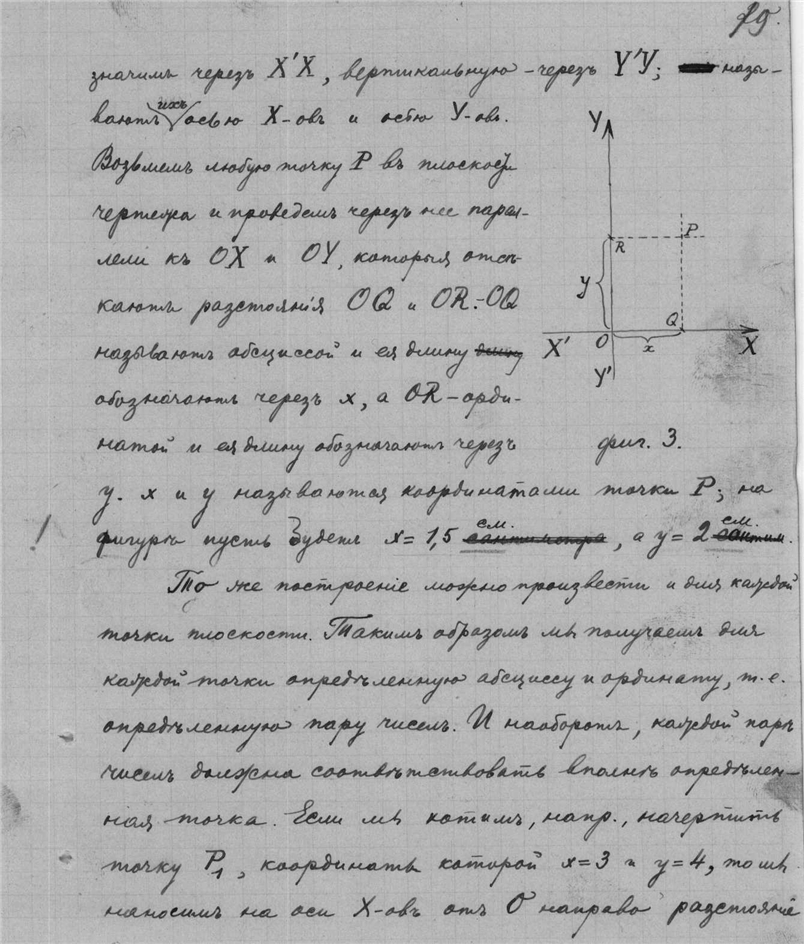 29.
значимъ черезъ X'X, вертикальную – черезъ Y'Y; назы-
ваютъ ихъ осью X-овъ и осью Y-овъ.
Возьмемъ любую точку P въ плоскости
чертежа и проведемъ черезъ нее парал-
лели къ OX и OY, которыя отсѣ-
каютъ разстоянія OQ и OR. – OQ
называютъ абсциссой и ея длину длину
обозначаютъ черезъ x, а OR – орди-
натой и ея длину обозначаютъ черезъ
y. x и y называются координатами точки P; на
! фигурѣ пусть будетъ x = 1,5 сантиметра см., а y = 2 сантим. см.
То же построеніе можно произвести и для каждой
точки плоскости. Такимъ образомъ мы получаемъ для
каждой точки опредѣленную абсциссу и ординату, т.е.
опредѣленную пару чиселъ. И наоборотъ, каждой парѣ
чиселъ должна соотвѣтствовать вполнѣ опредѣлен-
ная точка. Если мы хотимъ, напр., начертить
точку P₁, координаты которой x=3 и y=4, то мы
наносимъ на оси X-овъ отъ O направо разстояніе
Y
R P
y
O Q
X' x X
Y'
фиг. 3.